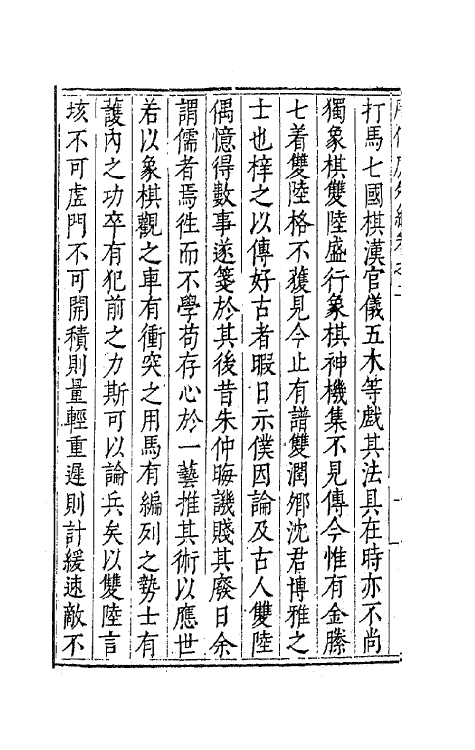 打馬七國棋漢官儀五木等戲其法具在時亦不尚
獨象棋雙陸盛行象棋神機集不見傳今惟有金縢
七着雙陸格不獲見今止有譜雙潤鄉沈君博雅之
士也梓之以傳好古者暇日示僕因論及古人雙陸
偶憶得數事遂箋於其後昔朱仲晦譏賤其廢日余
謂儒者焉徃而不學苟存心於一藝推其術以應世
若以象棋觀之車有衝突之用馬有編列之勢士有
護內之功卒有犯前之力斯可以論兵矣以雙陸言
垓不可虛門不可開積則量輕重遲則計緩速敵不